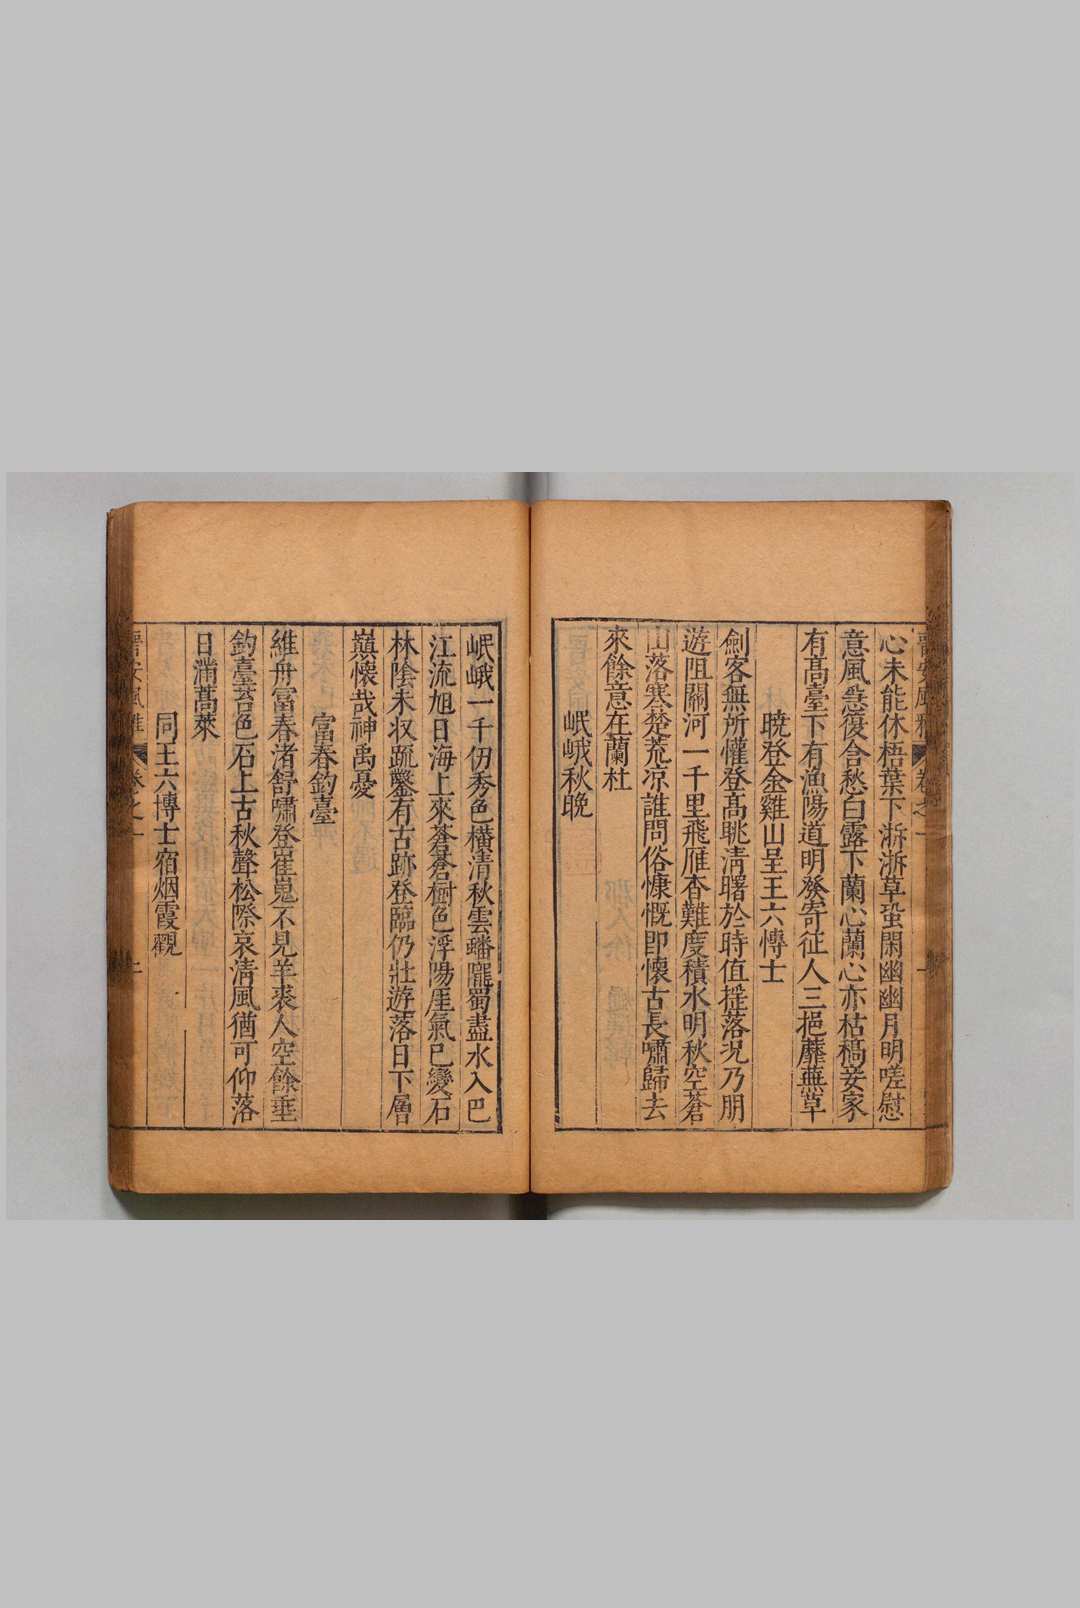 心未能休梧葉下淅淅草蛩閑幽幽月明嗟慰
意風㤂復合愁白露下蘭心蘭心亦枯槁妾家
有髙臺下有漁陽道明發寄征人三挹蘼蕪草
暁登金雞山呈王六博士
劍客無所懽登髙眺淸曙於時值揺落况乃朋
遊阻關河一千里飛雁杳難度積水明秋空蒼
山落寒楚荒凉誰問俗慷慨即懷古長嘯歸去
來餘意在蘭杜
岷峨秋晩
岷峨一千仞秀色橫清秋雲蟠隴蜀盡水入巴
江流旭日海上來蒼蒼樹色浮陽厓氣已變石
林陰未収䟽鑿有古跡登臨仍壯遊落日下層
巔懷哉神禹憂
富春釣臺
維舟富春渚舒嘯登崔嵬不見羊裘人空餘垂
釣臺苔色石上古秋聲松際哀清風猶可仰落
日滿蒿萊
同王六博士宿烟霞觀
晋安風雅 卷之一